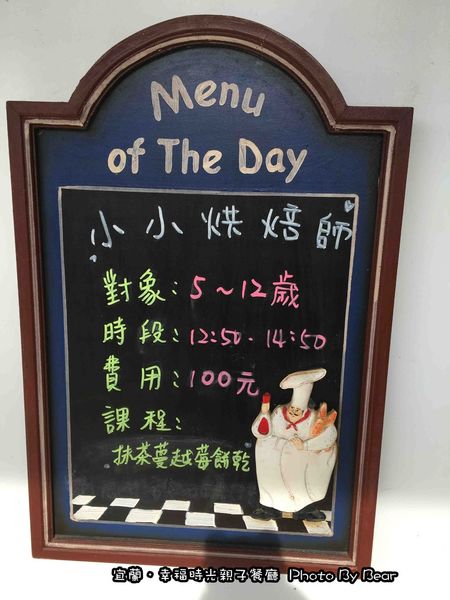 Menu
of The Day
小小烘焙師
對象：5～12歲
時段：12:50-14:50
費用：100元
課程：
抹茶蔓越莓餅乾
宜蘭·幸福時光親子餐廳 Photo By Bear